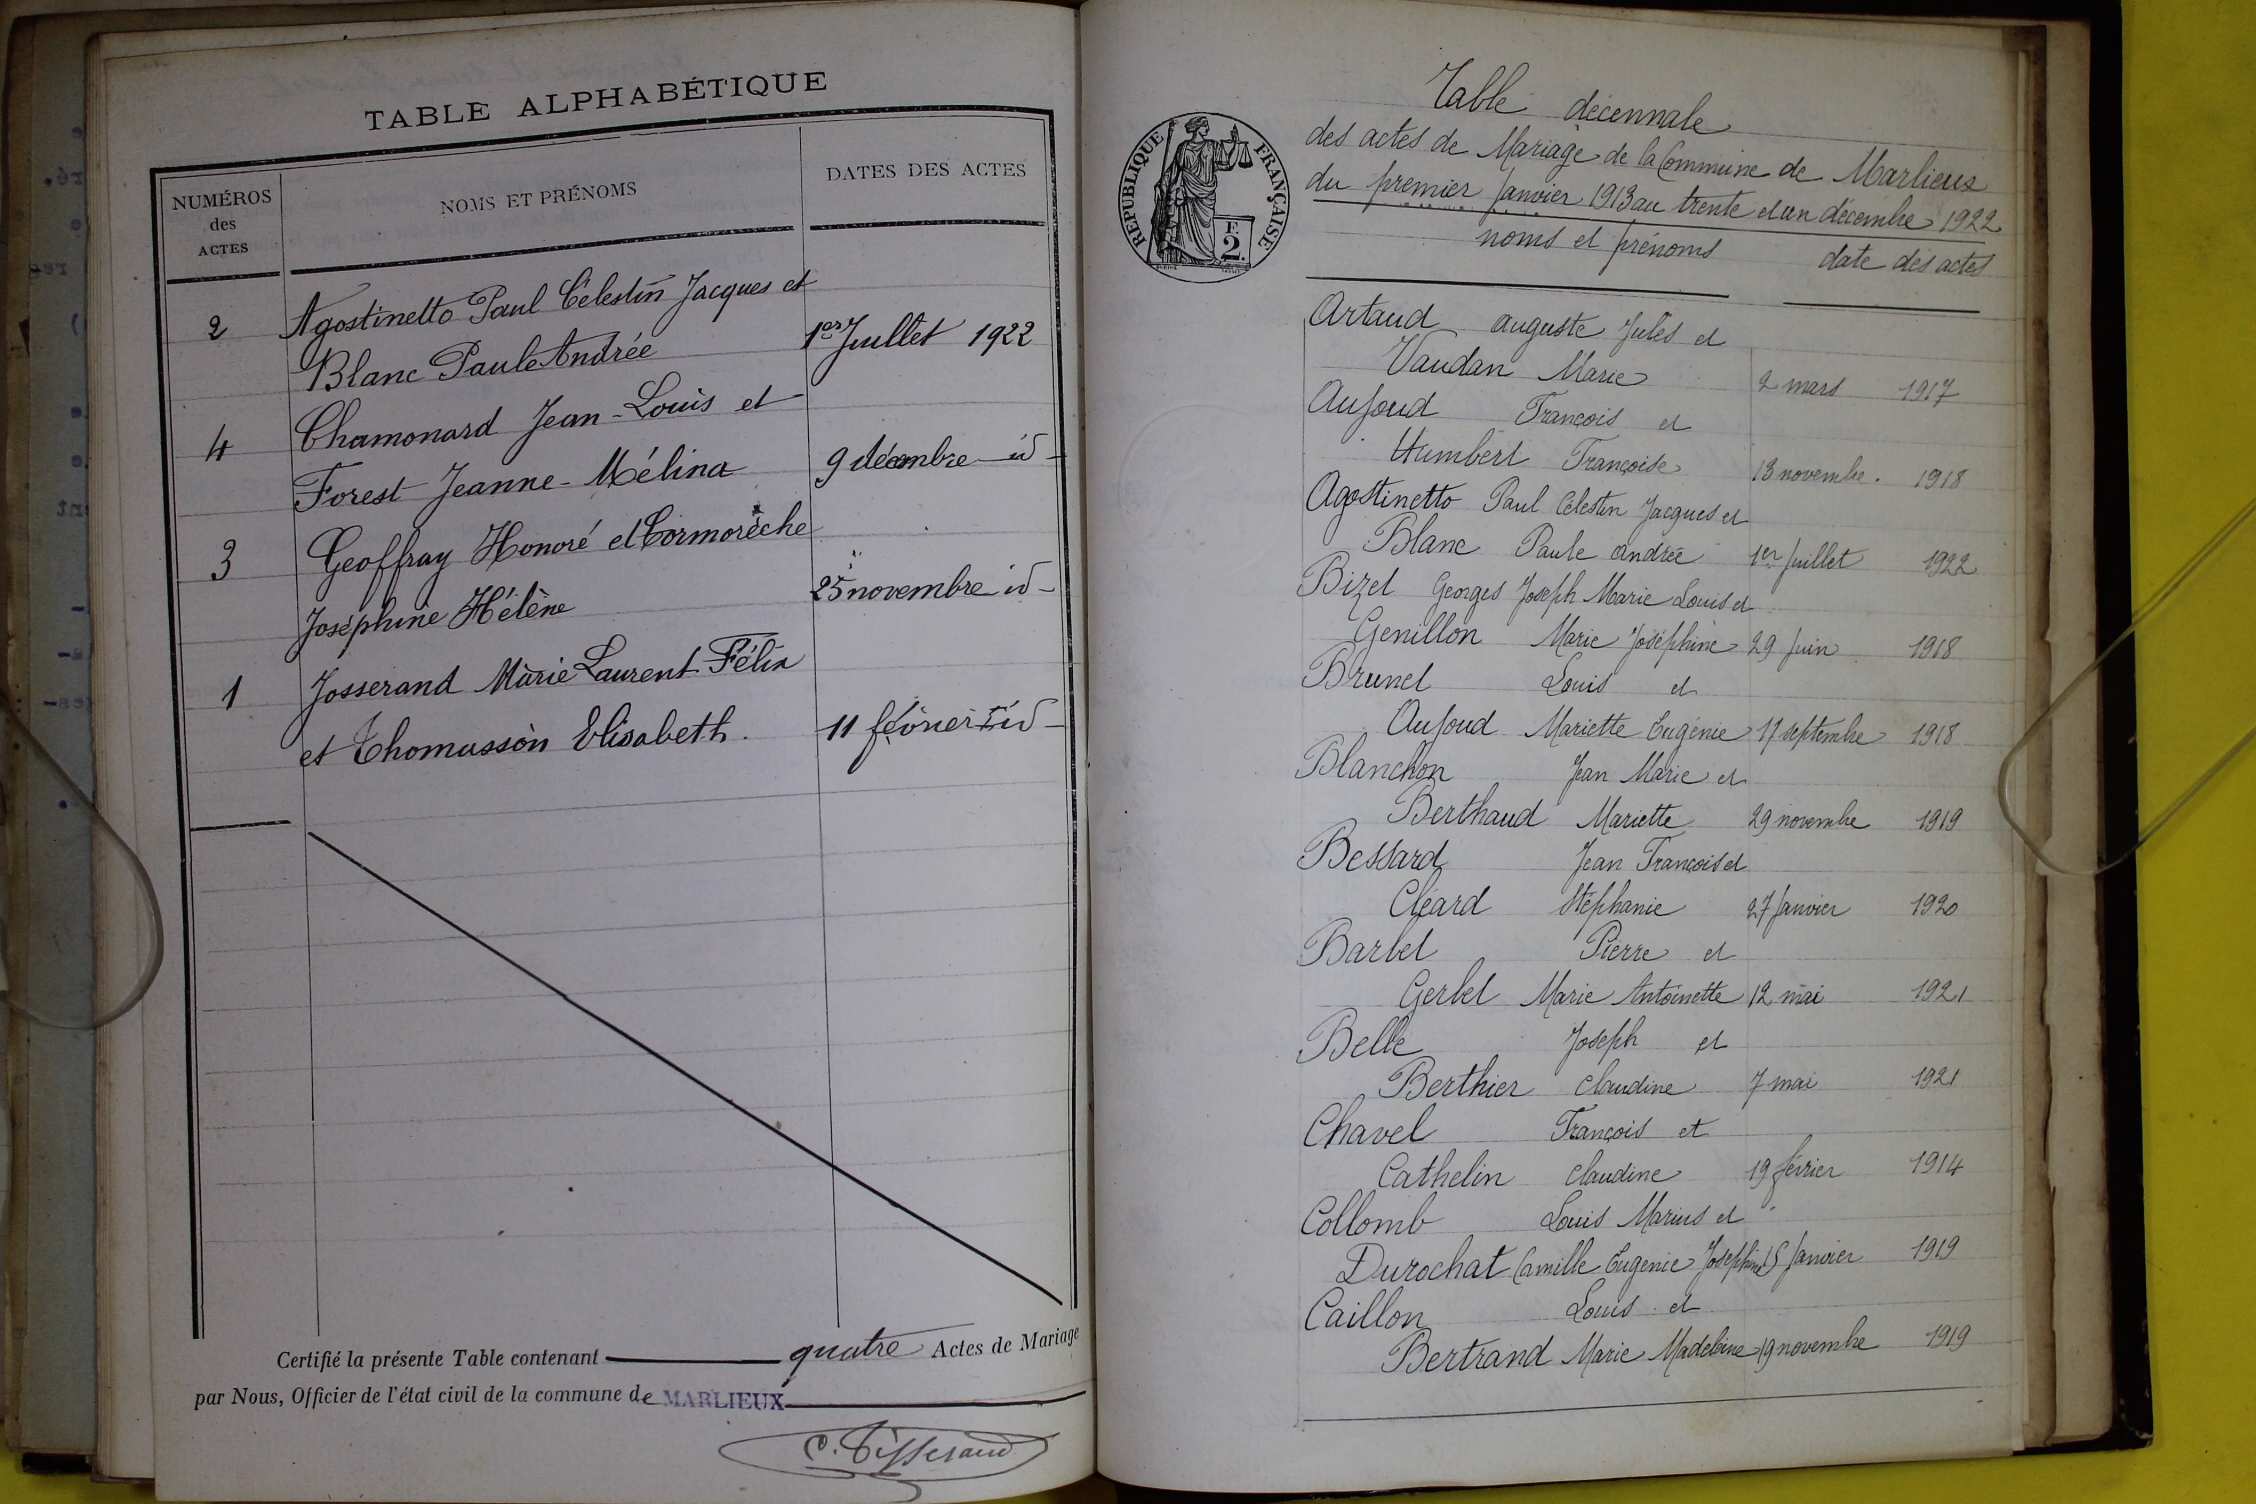 TABLE ALPHABÉTIQUE
NUMÉROS
des
ACTES
NOMS ET PRÉNOMS
DATES DES ACTES
2 Agostinetto Paul Célestin Jacques et
Blanc Paule Andrée 1er Juillet 1922
4 Chamonard Jean-Louis et
Forest Jeanne-Mélina 9 décembre id-
3 Geoffray Honoré et Cormorèche
Joséphine Hélène 25 novembre id-
1 Josserand Marie Laurent Félix
et Thomasson Elisabeth. 11 février id-
Certifié la présente Table contenant quatre Actes de Mariage
par Nous, Officier de l'état civil de la commune de MARLIEUX
C. Tisserand
RÉPUBLIQUE FRANÇAISE
F.
2.
Table décennale
des actes de Mariage de la Commune de Marlieux
du premier Janvier 1913 au trente et un décembre 1922
noms et prénoms date des actes
Artaud auguste Jules et
Vaudan Marie 2 mars 1917
Aufoud François et
Humbert Françoise 13 novembre. 1918
Agostinetto Paul Célestin Jacques et
Blanc Paule andrée 1er Juillet 1922
Bizet Georges Joseph Marie Louis et
Genillon Marie Joséphine 29 Juin 1918
Brunet Louis et
Aufoud Mariette Eugénie 17 septembre 1918
Blanchon Jean Marie et
Berthaud Mariette 29 novembre 1919
Bessard Jean François et
Cléard Stéphanie 27 Janvier 1920
Barbet Pierre et
Gerbet Marie Antoinette 12 mai 1921
Belle Joseph et
Berthier Claudine 7 mai 1921
Chavel François et
Cathelin Claudine 19 février 1914
Collomb Louis Marius et
Durochat Camille Eugénie Joséphine Janvier 1919
Caillon Louis et
Bertrand Marie Madeleine 19 novembre 1919